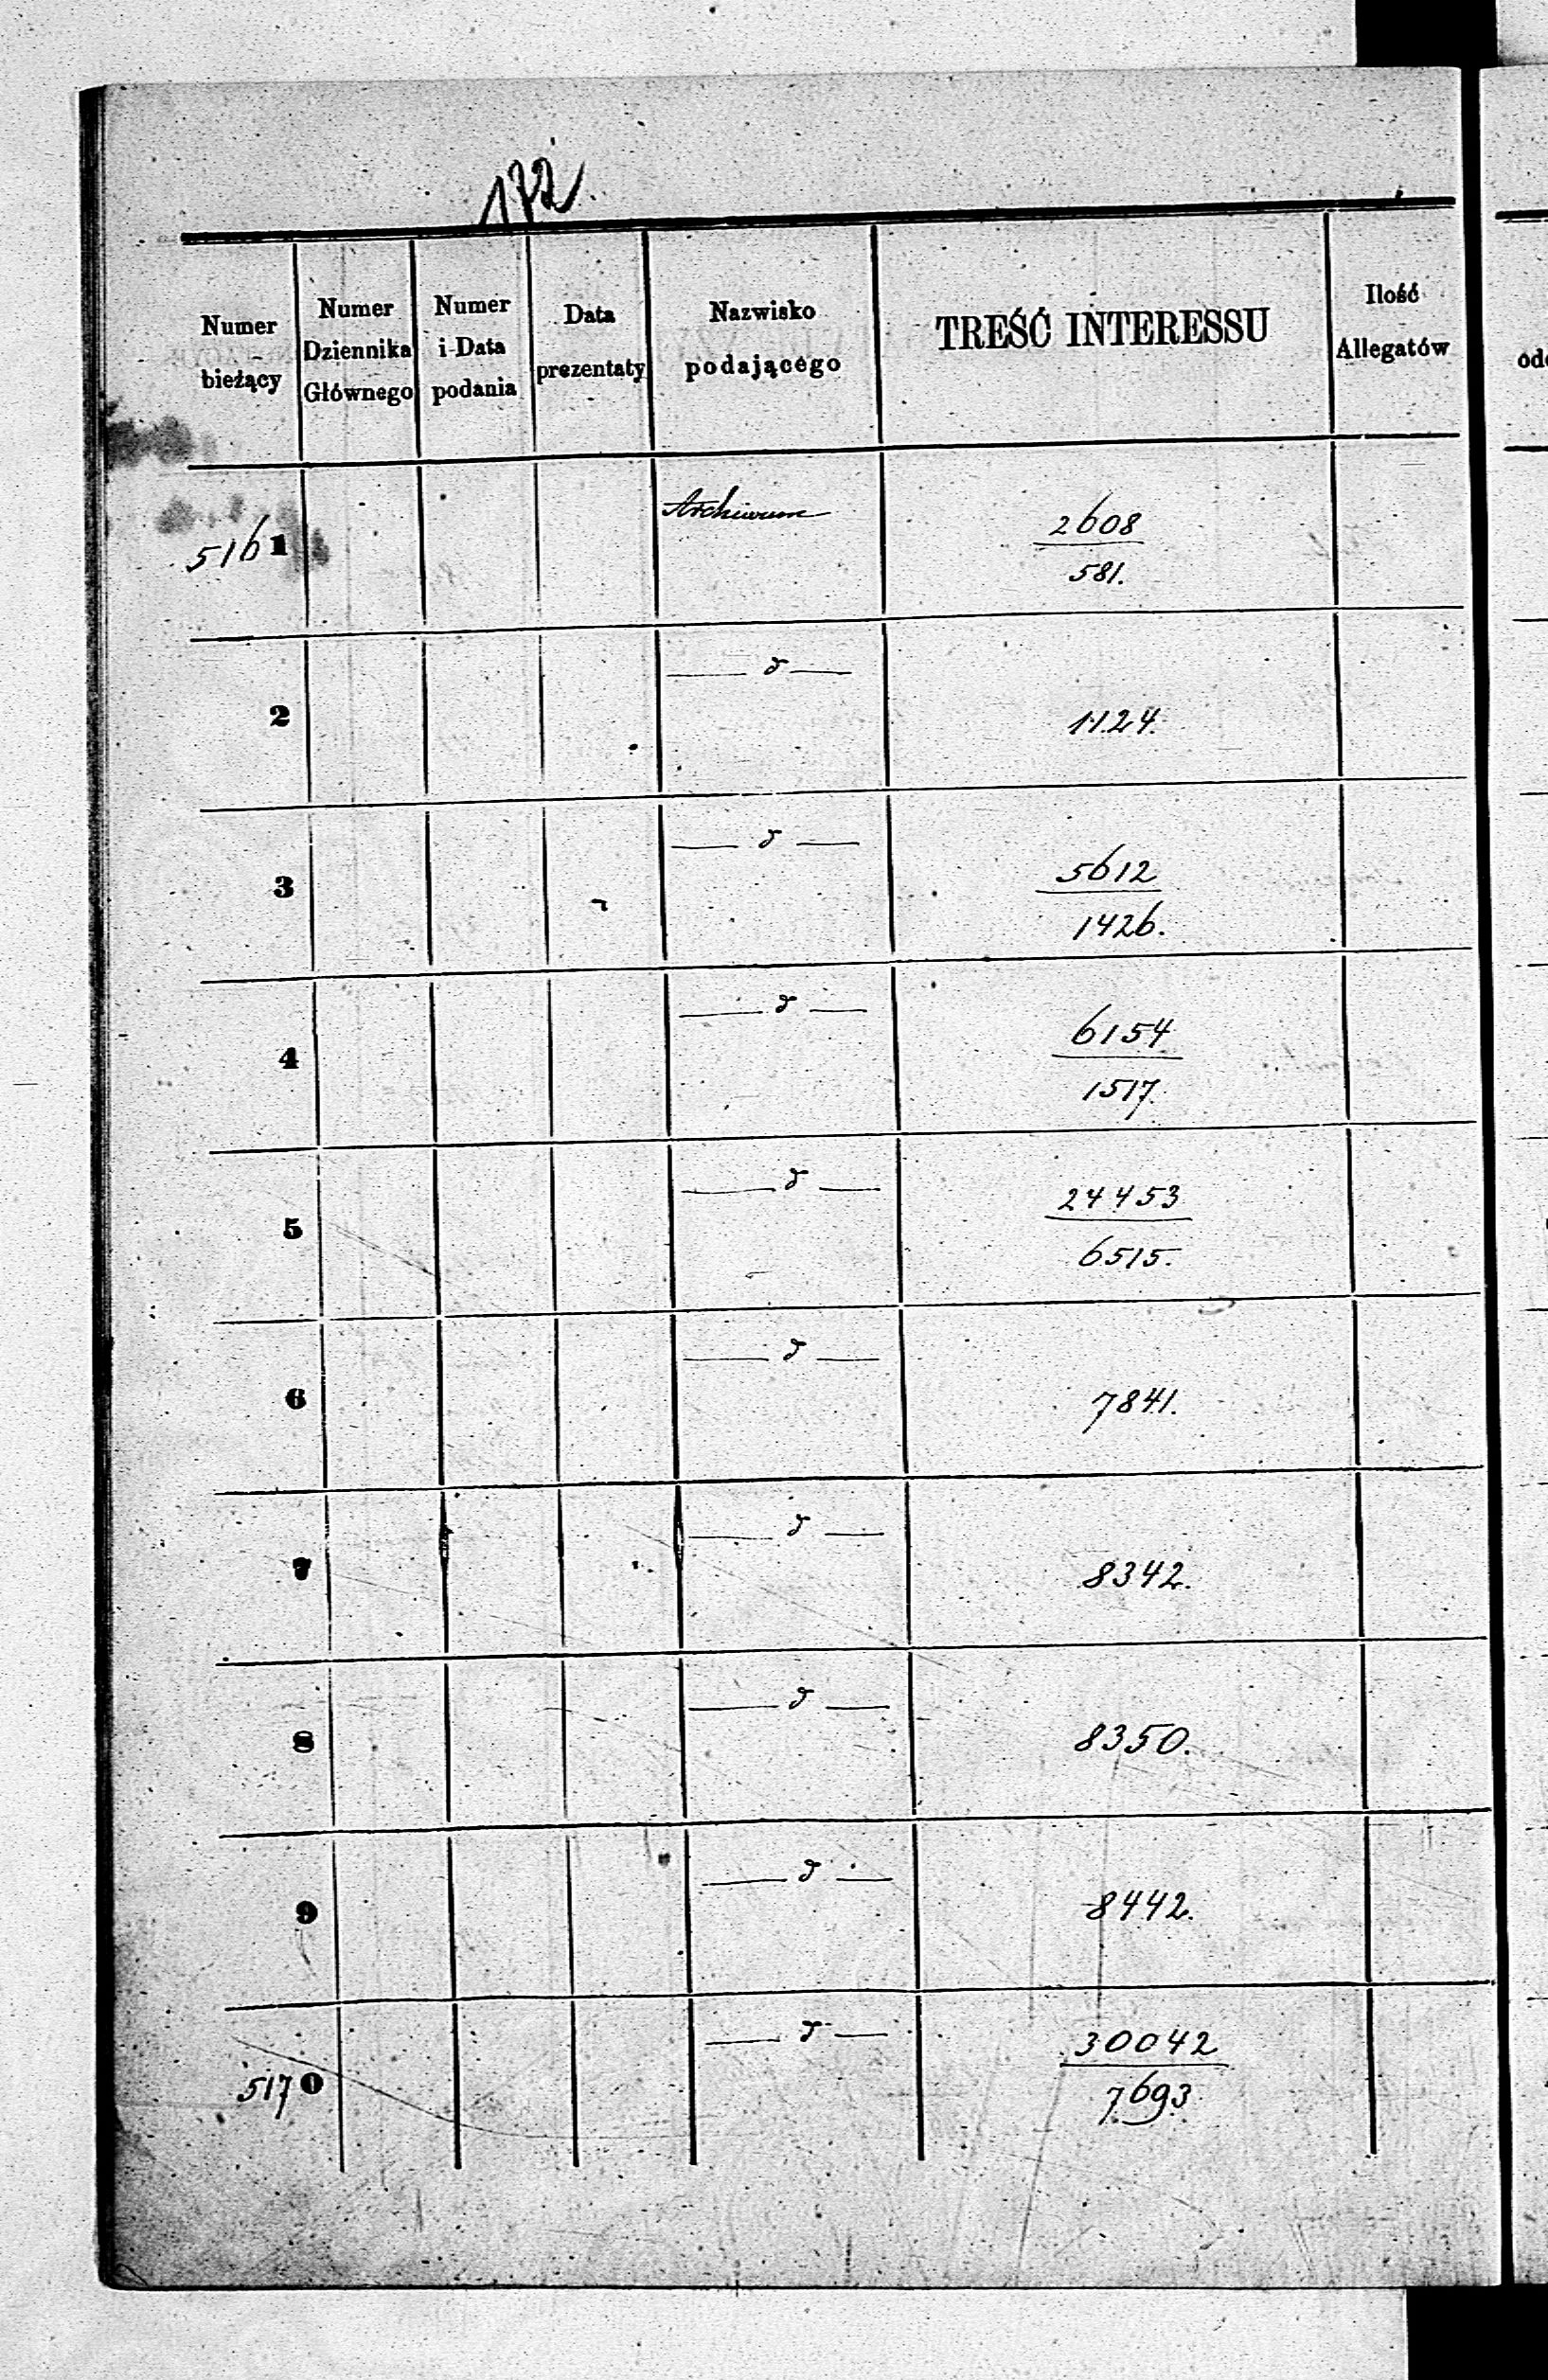 172.
Numer bieżący
Numer Dziennika Głównego
Numer i Data podania
Data prezentaty
Nazwisko podającego
TREŚĆ INTERESSU
Ilość Allegatów
5161 Archiwum 2608
581.
2 — d — 1124.
3 — d — 5612
1426.
4 — d — 6154
1517.
5 — d — 24453
6515.
6 — d — 7841.
7 — d — 8342.
8 — d — 8350.
9 — d — 8442.
5170 — d — 30042
7693.